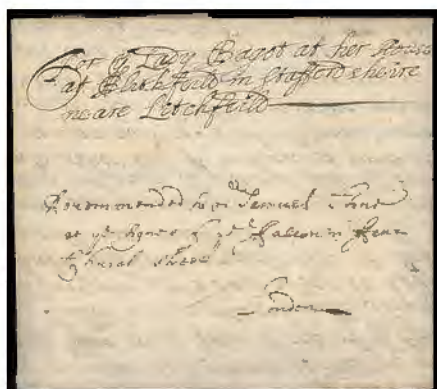 For ye Lady Bagot at her House
at Blithfeild in Stafford sheire
neare Litchfeild
Recommended to mr Samuel
at ye signe of ye Falcon in
Street
London